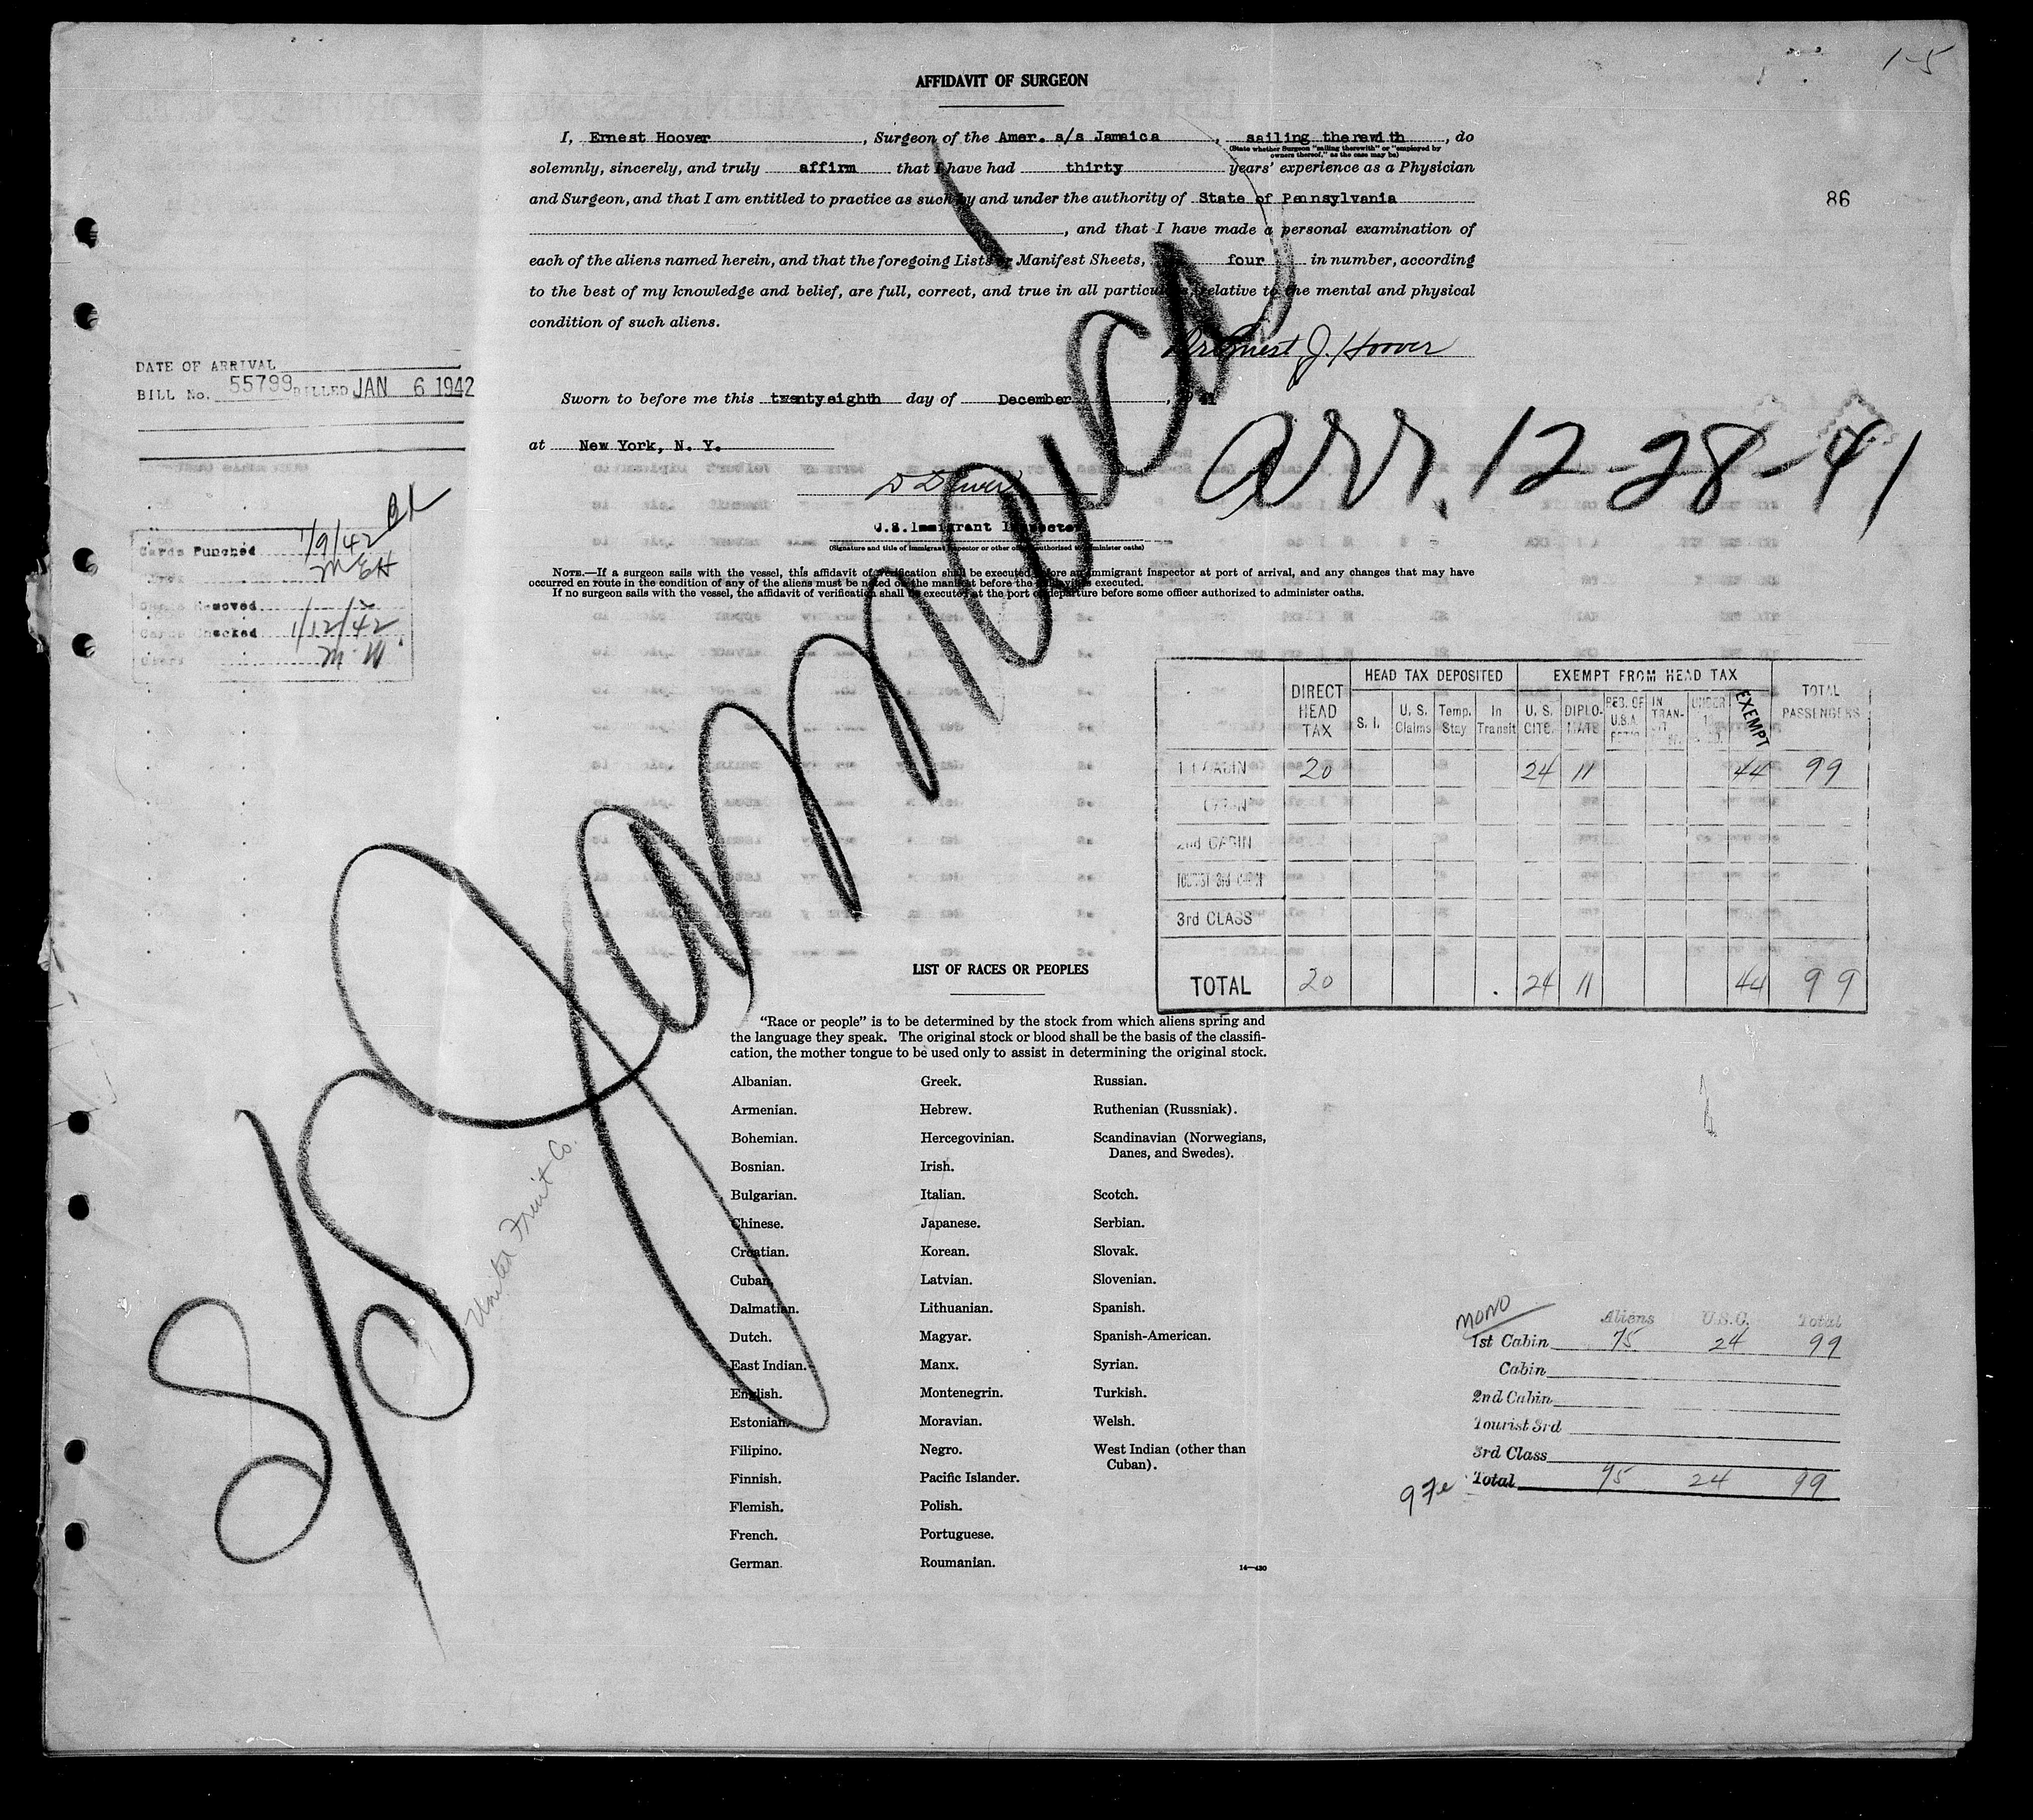 1-5
AFFIDAVIT OF SURGEON
I, Ernest Hoover, Surgeon of the Amer. s/s Jamaica, sailing therewith, do
(State whether Surgeon "sailing therewith" or "employed by
owners thereof," as the case may be)
solemnly, sincerely, and truly affirm that I have had thirty years' experience as a Physician
and Surgeon, and that I am entitled to practice as such by and under the authority of State of Pennsylvania
86
, and that I have made a personal examination of
each of the aliens named herein, and that the foregoing Lists or Manifest Sheets, four in number, according
to the best of my knowledge and belief, are full, correct, and true in all particulars relative to the mental and physical
condition of such aliens.
Dr Ernest J. Hoover
DATE OF ARRIVAL
BILL No. 55799 BILLED JAN 6 1942
Sworn to before me this twentyeighth day of December, 41
at New York, N. Y.
arr. 12-28-41
U.S. Immigrant Inspector
(Signature and title of Immigrant Inspector or other officer authorized to administer oaths)
Cards Punched 1/9/42
MEH
Removed
Cards Checked 1/12/42
Clerk
NOTE.—If a surgeon sails with the vessel, this affidavit of verification shall be executed before an Immigrant Inspector at port of arrival, and any changes that may have
occurred en route in the condition of any of the aliens must be noted on the manifest before the affidavit is executed.
If no surgeon sails with the vessel, the affidavit of verification shall be executed at the port of departure before some officer authorized to administer oaths.
S/S Jamaica
United Fruit Co.
DIRECT HEAD TAX HEAD TAX DEPOSITED EXEMPT FROM HEAD TAX TOTAL PASSENGERS
S. I. U. S. Claims Temp. Stay In Transit U. S. CITS. DIPLO- MATS U.S.A. IN TRAN- UNDER EXEMPT
1st CABIN 20 24 11 44 99
CABIN
2nd CABIN
TOURIST 3rd CABIN
3rd CLASS
TOTAL 20 24 11 44 99
LIST OF RACES OR PEOPLES
"Race or people" is to be determined by the stock from which aliens spring and
the language they speak. The original stock or blood shall be the basis of the classifi-
cation, the mother tongue to be used only to assist in determining the original stock.
Albanian.
Armenian.
Bohemian.
Bosnian.
Bulgarian.
Chinese.
Croatian.
Cuban.
Dalmatian.
Dutch.
East Indian.
English.
Estonian.
Filipino.
Finnish.
Flemish.
French.
German.
Greek.
Hebrew.
Hercegovinian.
Irish.
Italian.
Japanese.
Korean.
Latvian.
Lithuanian.
Magyar.
Manx.
Montenegrin.
Moravian.
Negro.
Pacific Islander.
Polish.
Portuguese.
Roumanian.
Russian.
Ruthenian (Russniak).
Scandinavian (Norwegians,
Danes, and Swedes).
Scotch.
Serbian.
Slovak.
Slovenian.
Spanish.
Spanish-American.
Syrian.
Turkish.
Welsh.
West Indian (other than
Cuban).
14—430
MONO
Aliens U.S.C. Total
1st Cabin 75 24 99
Cabin
2nd Cabin
Tourist 3rd
3rd Class
Total 75 24 99